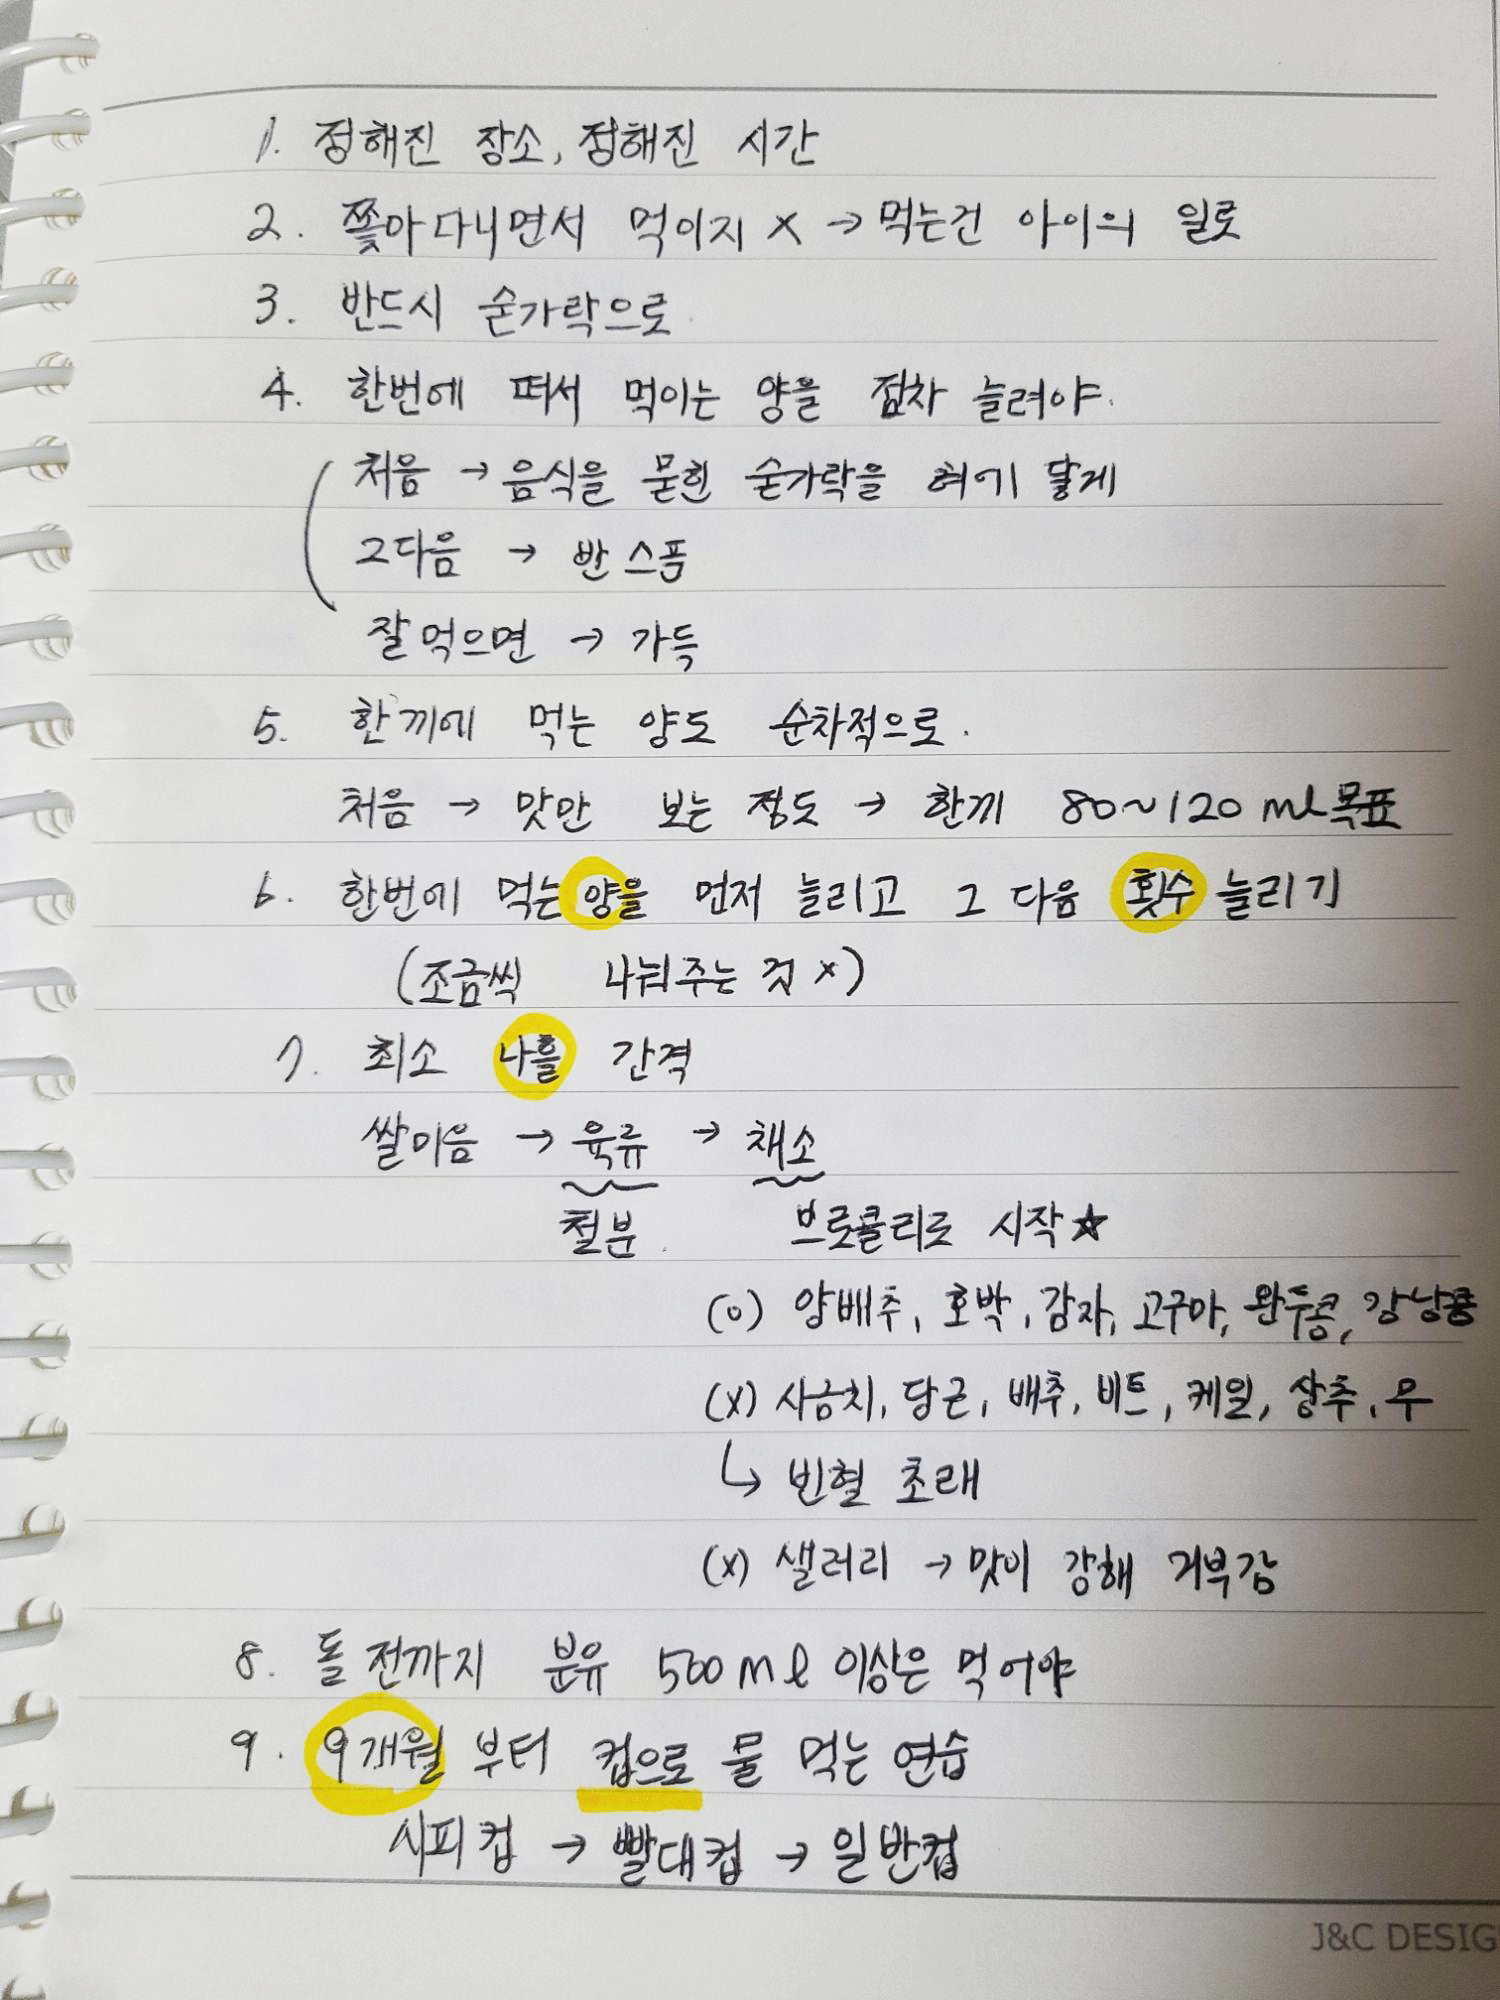 1. 정해진 장소, 정해진 시간
2. 쫓아다니면서 먹이지 X → 먹는건 아이의 일로
3. 반드시 숟가락으로
4. 한번에 떠서 먹이는 양을 점차 늘려야.
처음 → 음식을 묻힌 숟가락을 혀에 닿게
그다음 → 반 스푼
잘먹으면 → 가득
5. 한끼에 먹는 양도 순차적으로.
처음 → 맛만 보는 정도 → 한끼 80~120ml 목표
6. 한번에 먹는 양을 먼저 늘리고 그 다음 횟수 늘리기
(조금씩 나눠주는 것 x)
7. 최소 나흘 간격
쌀미음 → 육류 → 채소
철분. 브로콜리로 시작★
(o) 양배추, 호박, 감자, 고구마, 완두콩, 강낭콩
(x) 시금치, 당근, 배추, 비트, 케일, 상추, 무
↳ 빈혈 초래
(x) 샐러리 → 맛이 강해 거부감
8. 돌 전까지 분유 500ml 이상은 먹어야
9. 9개월 부터 컵으로 물 먹는 연습
시피컵 → 빨대컵 → 일반컵
J&C DESIG